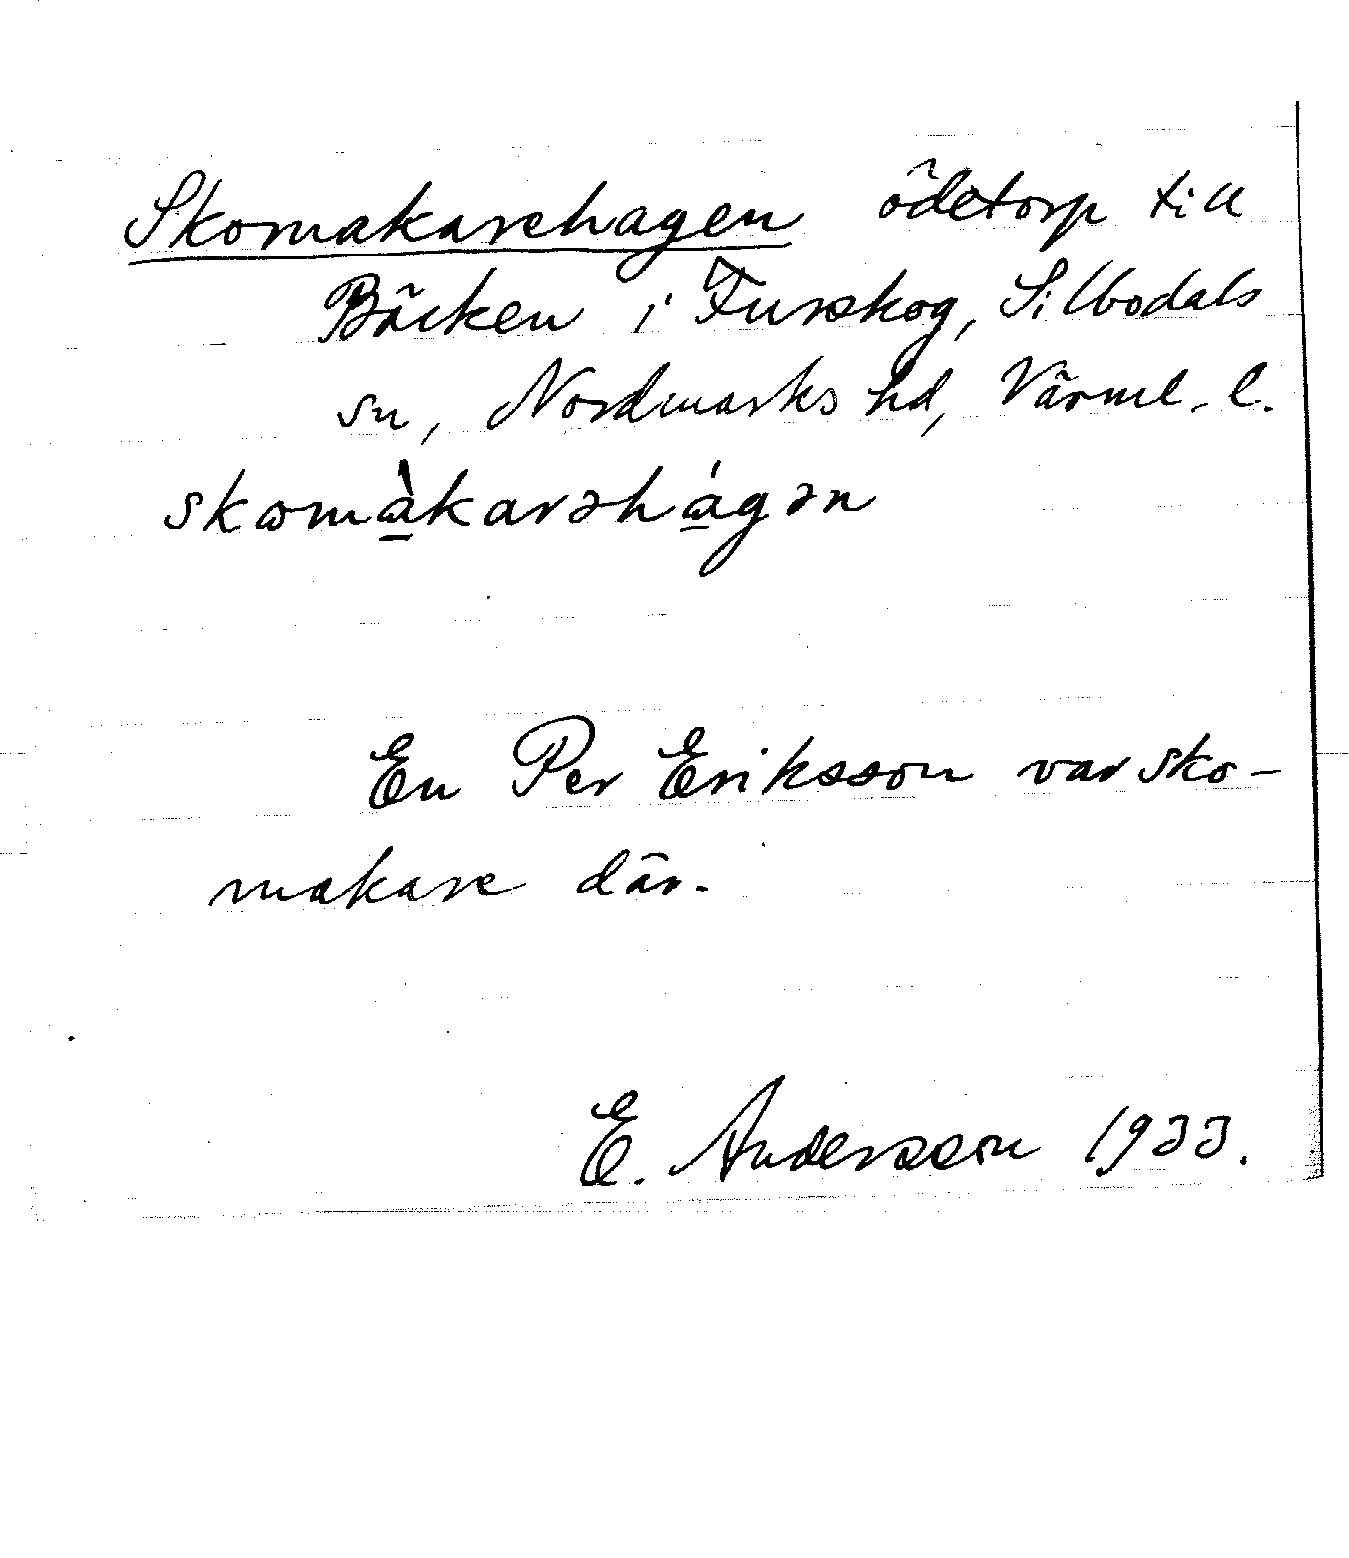 Skomakarehagen ödetorp till
Bäcken i Furskog, Silbodals
sn, Nordmarks hd, Värml. l.
skomàkarəhágən
En Per Eriksson var sko-
makare där.
E. Andersson 1933.